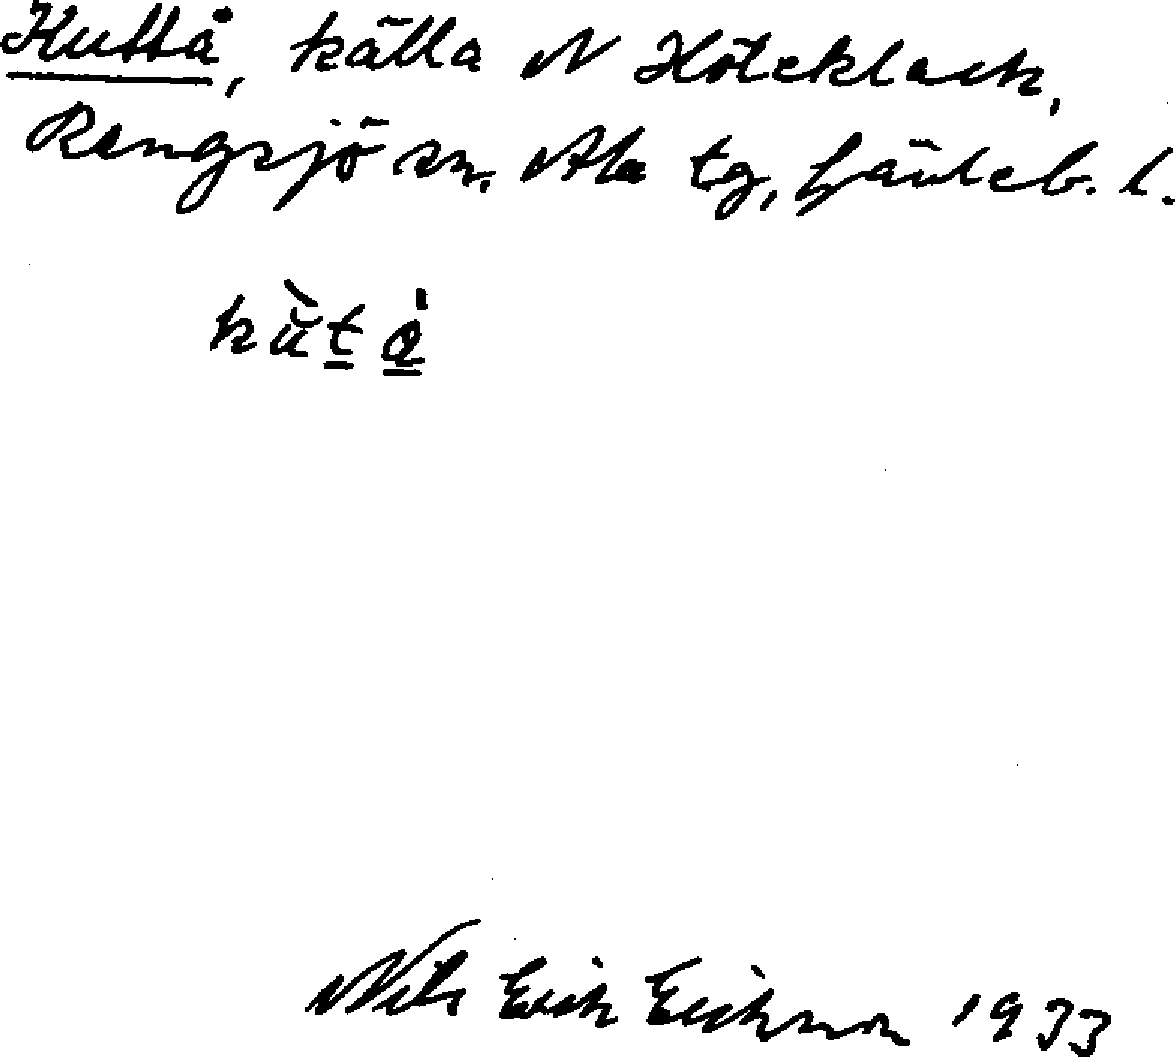 Kuttå, källa N Höleklack,
Rengsjö sn, Ala tg, Gävleb. l.
kùtà
Nils Erik Eriksson 1933